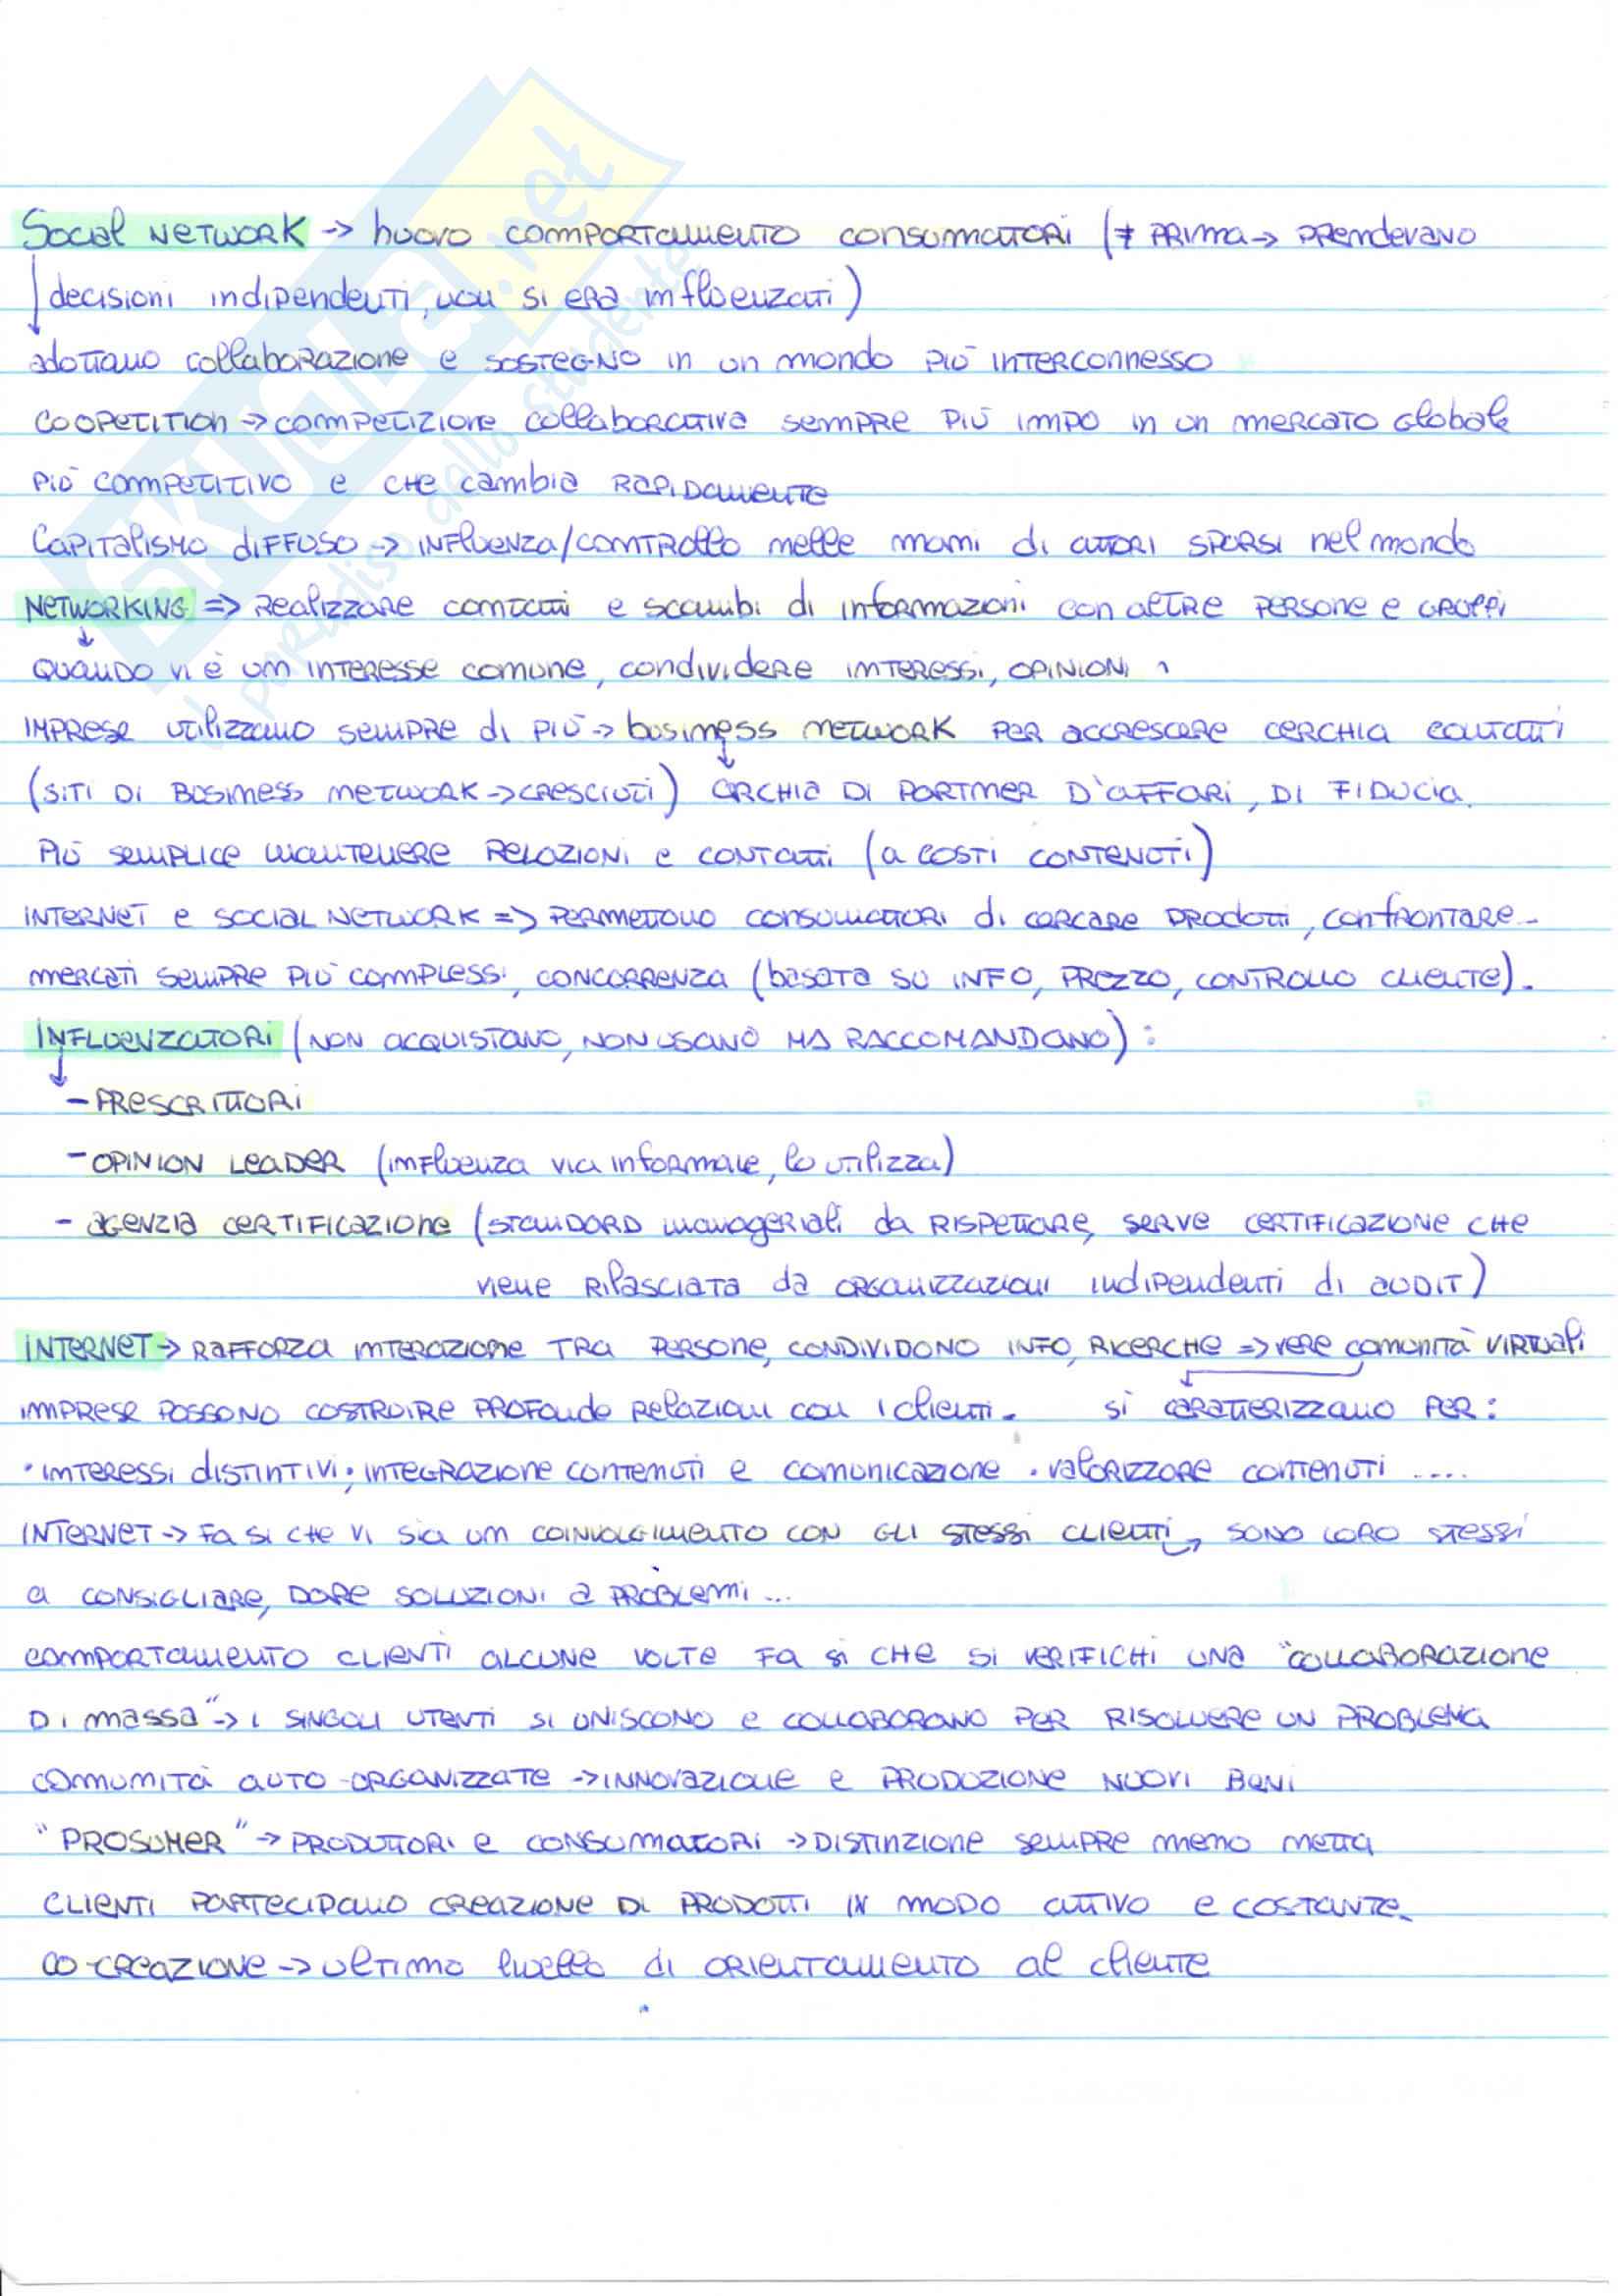 Social NETWORK -> nuovo comportamento consumatori (≠ PRIMA -> PRENDEVANO
decisioni indipendenti, non si era influenzati)
adottano collaborazione e SOSTEGNO in un mondo più interconnesso
COOPETITION -> competizione collaborativa sempre più impo in un mercato globale
più competitivo e che cambia RAPIDAMENTE
Capitalismo diffuso -> influenza/controllo nelle mani di attori sparsi nel mondo
NETWORKING => Realizzare contatti e scambi di informazioni con altre persone e gruppi
quando vi è un interesse comune, condividere interessi, opinioni
IMPRESE utilizzano sempre di più -> business network per accrescere cerchia contatti
(siti di business network -> cresciuti) cerchia di partner d'affari, di fiducia.
Più semplice mantenere relazioni e contatti (a costi contenuti)
INTERNET e SOCIAL NETWORK => permettono consumatori di cercare prodotti, confrontare
mercati sempre più complessi, concorrenza (basata su INFO, PREZZO, CONTROLLO CLIENTE).
INFLUENZATORI (NON ACQUISTANO, NON USANO MA RACCOMANDANO):
- PRESCRITTORI
- OPINION LEADER (influenza via informale, lo utilizza)
- agenzia certificazione (standard manageriali da rispettare, serve certificazione che
viene rilasciata da organizzazioni indipendenti di audit)
INTERNET -> RAFFORZA INTERAZIONE TRA PERSONE, CONDIVIDONO INFO, RICERCHE => vere comunità virtuali
imprese possono costruire profonde relazioni con i clienti. si caratterizzano per:
• interessi distintivi • integrazione contenuti e comunicazione • valorizzare contenuti ....
INTERNET -> fa si che vi sia un coinvolgimento con gli stessi clienti, sono loro stessi
a consigliare, dare soluzioni a problemi ...
comportamento clienti alcune volte fa si che si verifichi una "collaborazione
di massa" -> i singoli utenti si uniscono e collaborano per risolvere un problema
comunità auto-organizzate -> innovazione e produzione nuovi beni
"PROSUMER" -> produttori e consumatori -> distinzione sempre meno netta
clienti partecipano creazione di prodotti in modo attivo e costante.
co-creazione -> ultimo livello di orientamento al cliente
SKUOLA.net
il paradiso dello studente